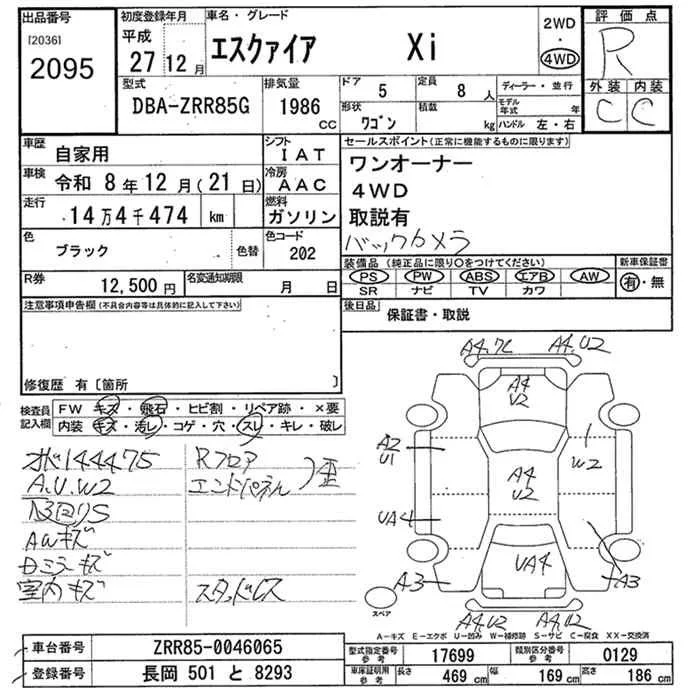 出品番号
[2036]
2095
初度登録年月
平成
27 12 月
車名・グレード
エスクァイア Xi
2WD
・
4WD
評価点
R
外装 内装
C C
型式
DBA-ZRR85G
排気量
1986
CC
ドア
5
定員
8 人
形状
ワゴン
積載
kg
ディーラー・並行
モデル年式 年
ハンドル 左・右
車歴
自家用
シフト
IAT
車検
令和 8年 12月(21日)
冷房
AAC
走行
14万4千474 km
燃料
ガソリン
色
ブラック
色替
色コード
202
R券
12,500 円
名変通知期限
月 日
セールスポイント(正常に機能するものに限ります)
ワンオーナー
4WD
取説有
バックカメラ
装備品 (純正品に限り○をつけてください)
新車保証書
PS PW ABS エアB AW
有・無
SR ナビ TV カワ
後日品
保証書・取説
注意事項申告欄(不具合内容等は具体的に記入して下さい)
修復歴 有〔箇所 〕
検査員記入欄
FW キズ・飛石・ヒビ割・リペア跡・×要
内装 キズ・汚レ・コゲ・穴・スレ・キレ・破レ
オド144475
A.U.W2
下回りS
AWキズ
Dミラーキズ
室内キズ
Rフロア
エンドパネル
歪
スタッドレス
A4.7C
A4.U2
A4
U2
A2
U1
1
W2
A4
U2
UA4
UA4
A3
A3
A4.U2
A4.U2
スペア
A-キズ E-エクボ U-凹み W-補修跡 S-サビ C-腐食 XX-交換済
車台番号
ZRR85-0046065
登録番号
長岡 501 と 8293
型式指定番号
参考
17699
類別区分番号
参考
0129
車庫証明用
参考
長さ
469 cm
幅
169 cm
高さ
186 cm